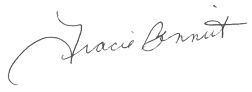 Tracie Bennett